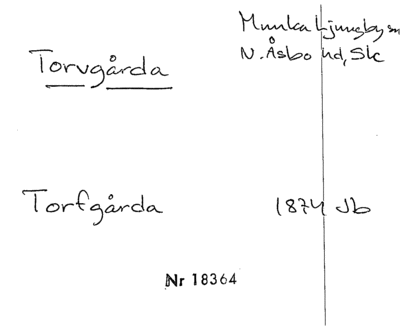 Munka Ljungby sn
Torvgårda
N. Åsbo hd, Sk
Torfgårda
1874 Jb
Nr 18364